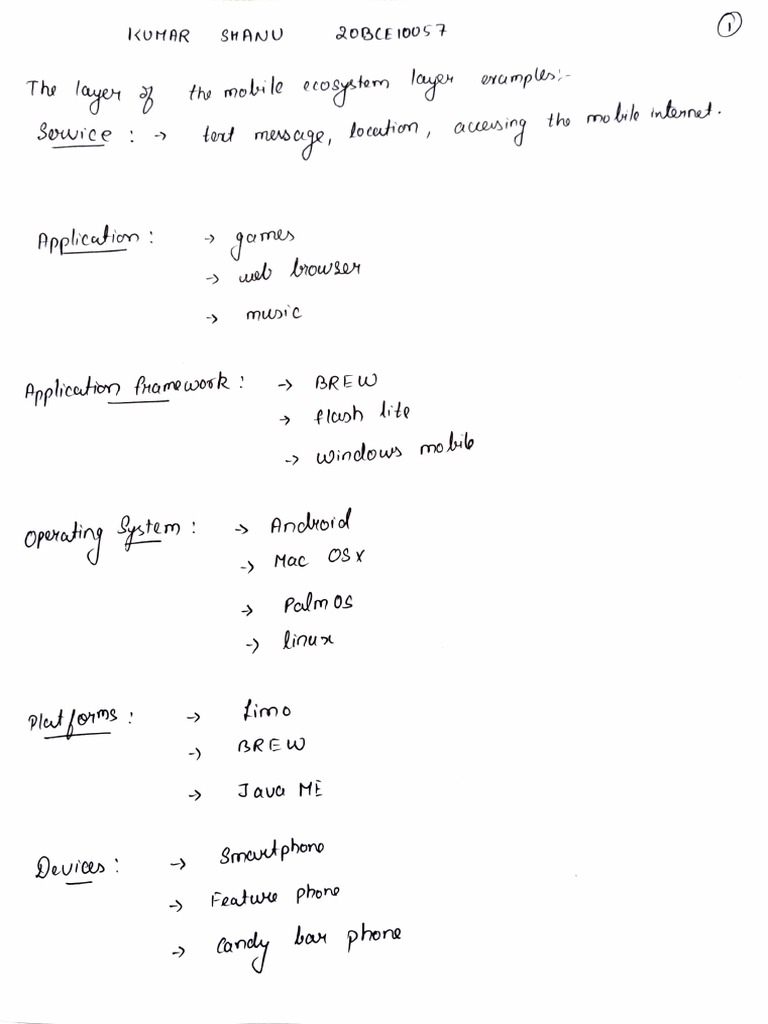 KUMAR SHANU 20BCE10057 1
The layer of the mobile ecosystem layer examples:-
Service : → text message, location, accessing the mobile internet.
Application : → games
→ web browser
→ music
Application framework : → BREW
→ flash lite
→ windows mobile
Operating System : → Android
→ Mac OSX
→ Palm OS
→ linux
Platforms : → Limo
→ BREW
→ Java ME
Devices : → Smartphone
→ Feature phone
→ Candy bar phone